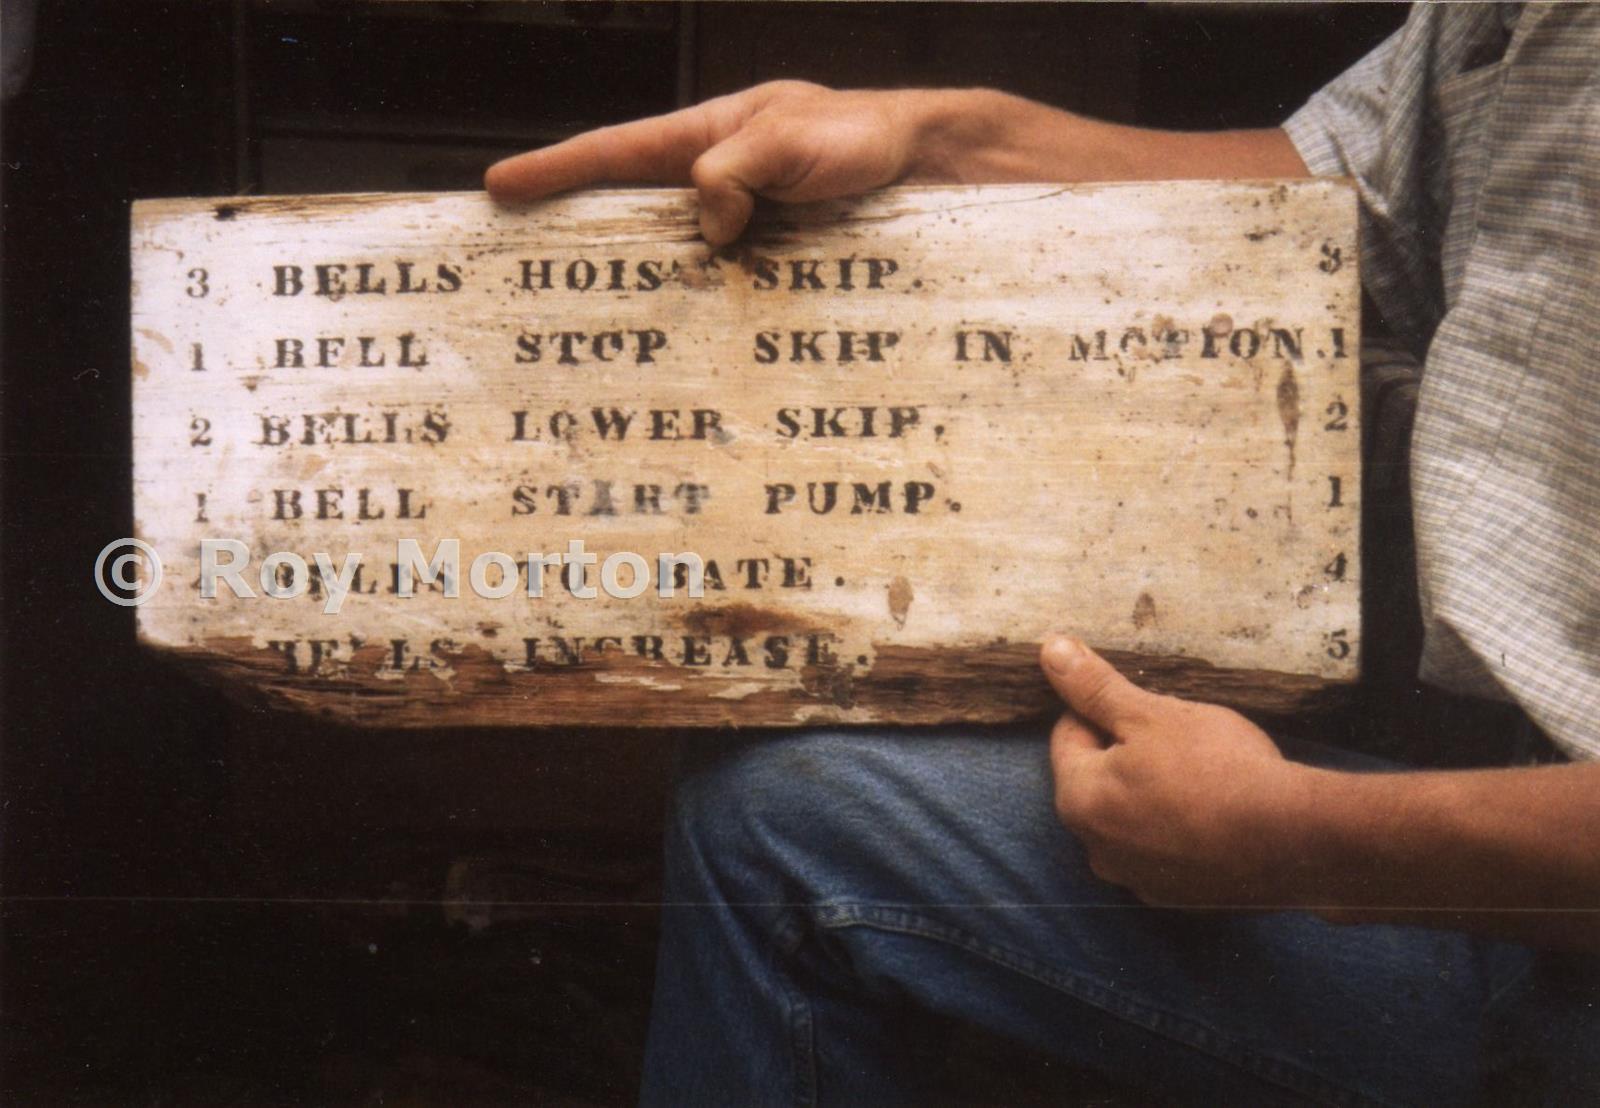 3 BELLS HOIST SKIP. 3
1 BELL STOP SKIP IN MOTION. 1
2 BELLS LOWER SKIP. 2
1 BELL START PUMP. 1
4 BELLS TO BATE. 4
BELLS INCREASE. 5
© Roy Morton